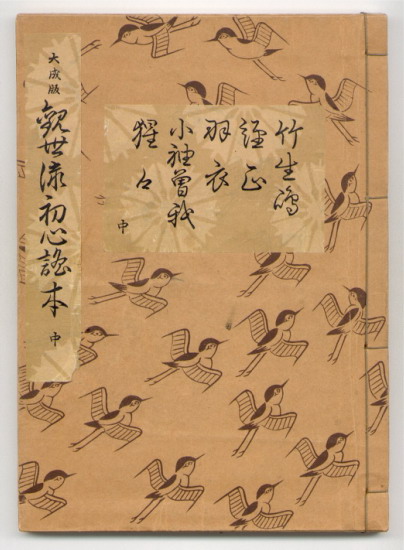 竹生島
經正
羽衣
小袖曽我
猩々
中
大成版
觀世流初心謠本
中